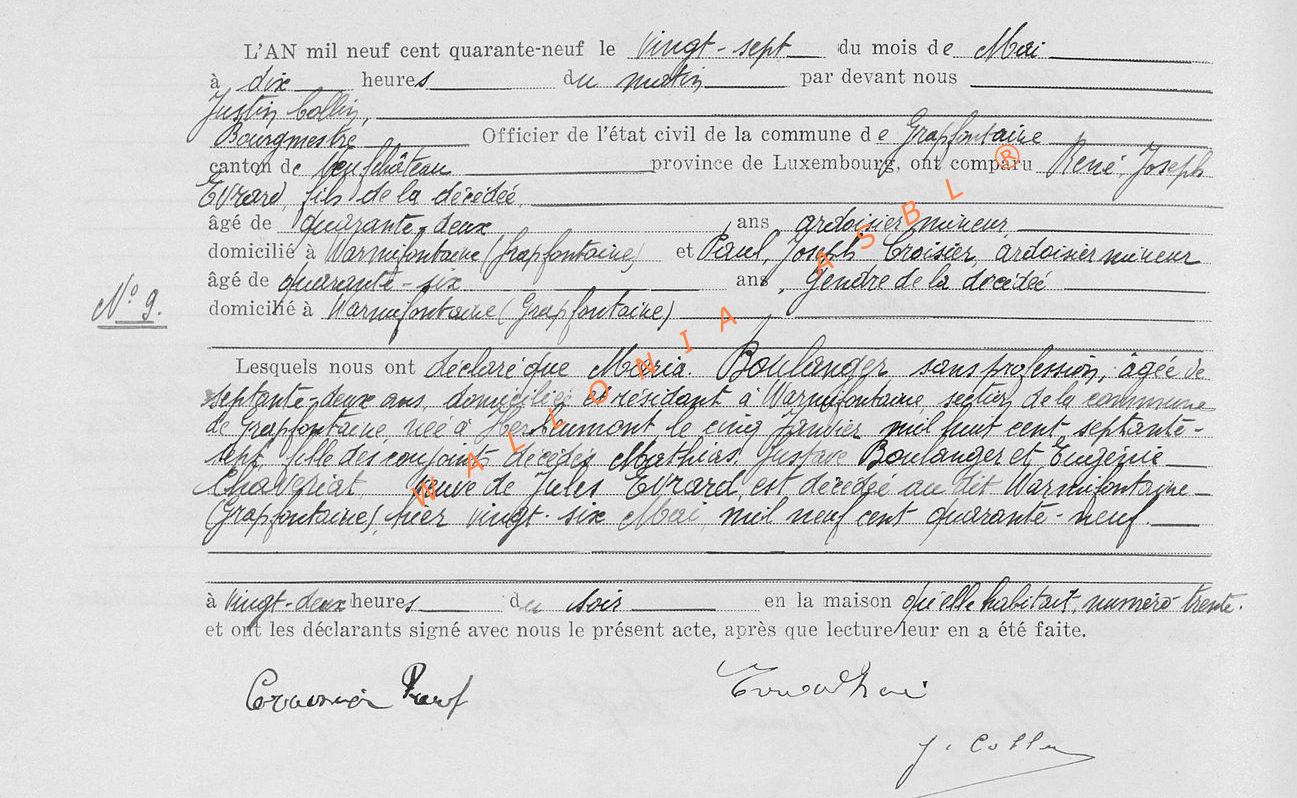 L'AN mil neuf cent quarante-neuf le vingt-sept du mois de Mai
à dix heures du matin par devant nous
Justin Collin,
Bourgmestre Officier de l'état civil de la commune de Grapfontaine
canton de Neufchâteau province de Luxembourg, ont comparu René, Joseph
Evrard, fils de la décédée
âgé de quarante-deux ans ardoisier mineur
domicilié à Warmifontaine (Grapfontaine) et Paul, Joseph Croisier, ardoisier mineur
âgé de quarante-six ans, gendre de la décédée
N° 9. domicilié à Warmifontaine (Grapfontaine)
Lesquels nous ont déclaré que Maria. Boulanger sans profession, âgée de
septante-deux ans, domiciliée et résidant à Warmifontaine, section de la commune
de Grapfontaine, née à Herbeumont le cinq Janvier mil huit cent septante-
sept, fille des conjoints décédés Mathias, Gustave Boulanger et Eugénie
Chaveriat, veuve de Jules Evrard, est décédée au dit Warmifontaine
(Grapfontaine), hier vingt-six Mai, mil neuf cent quarante-neuf.
à vingt-deux heures du soir en la maison qu'elle habitait, numéro trente.
et ont les déclarants signé avec nous le présent acte, après que lecture leur en a été faite.
J. Collin
WALLONIA ASBL ®